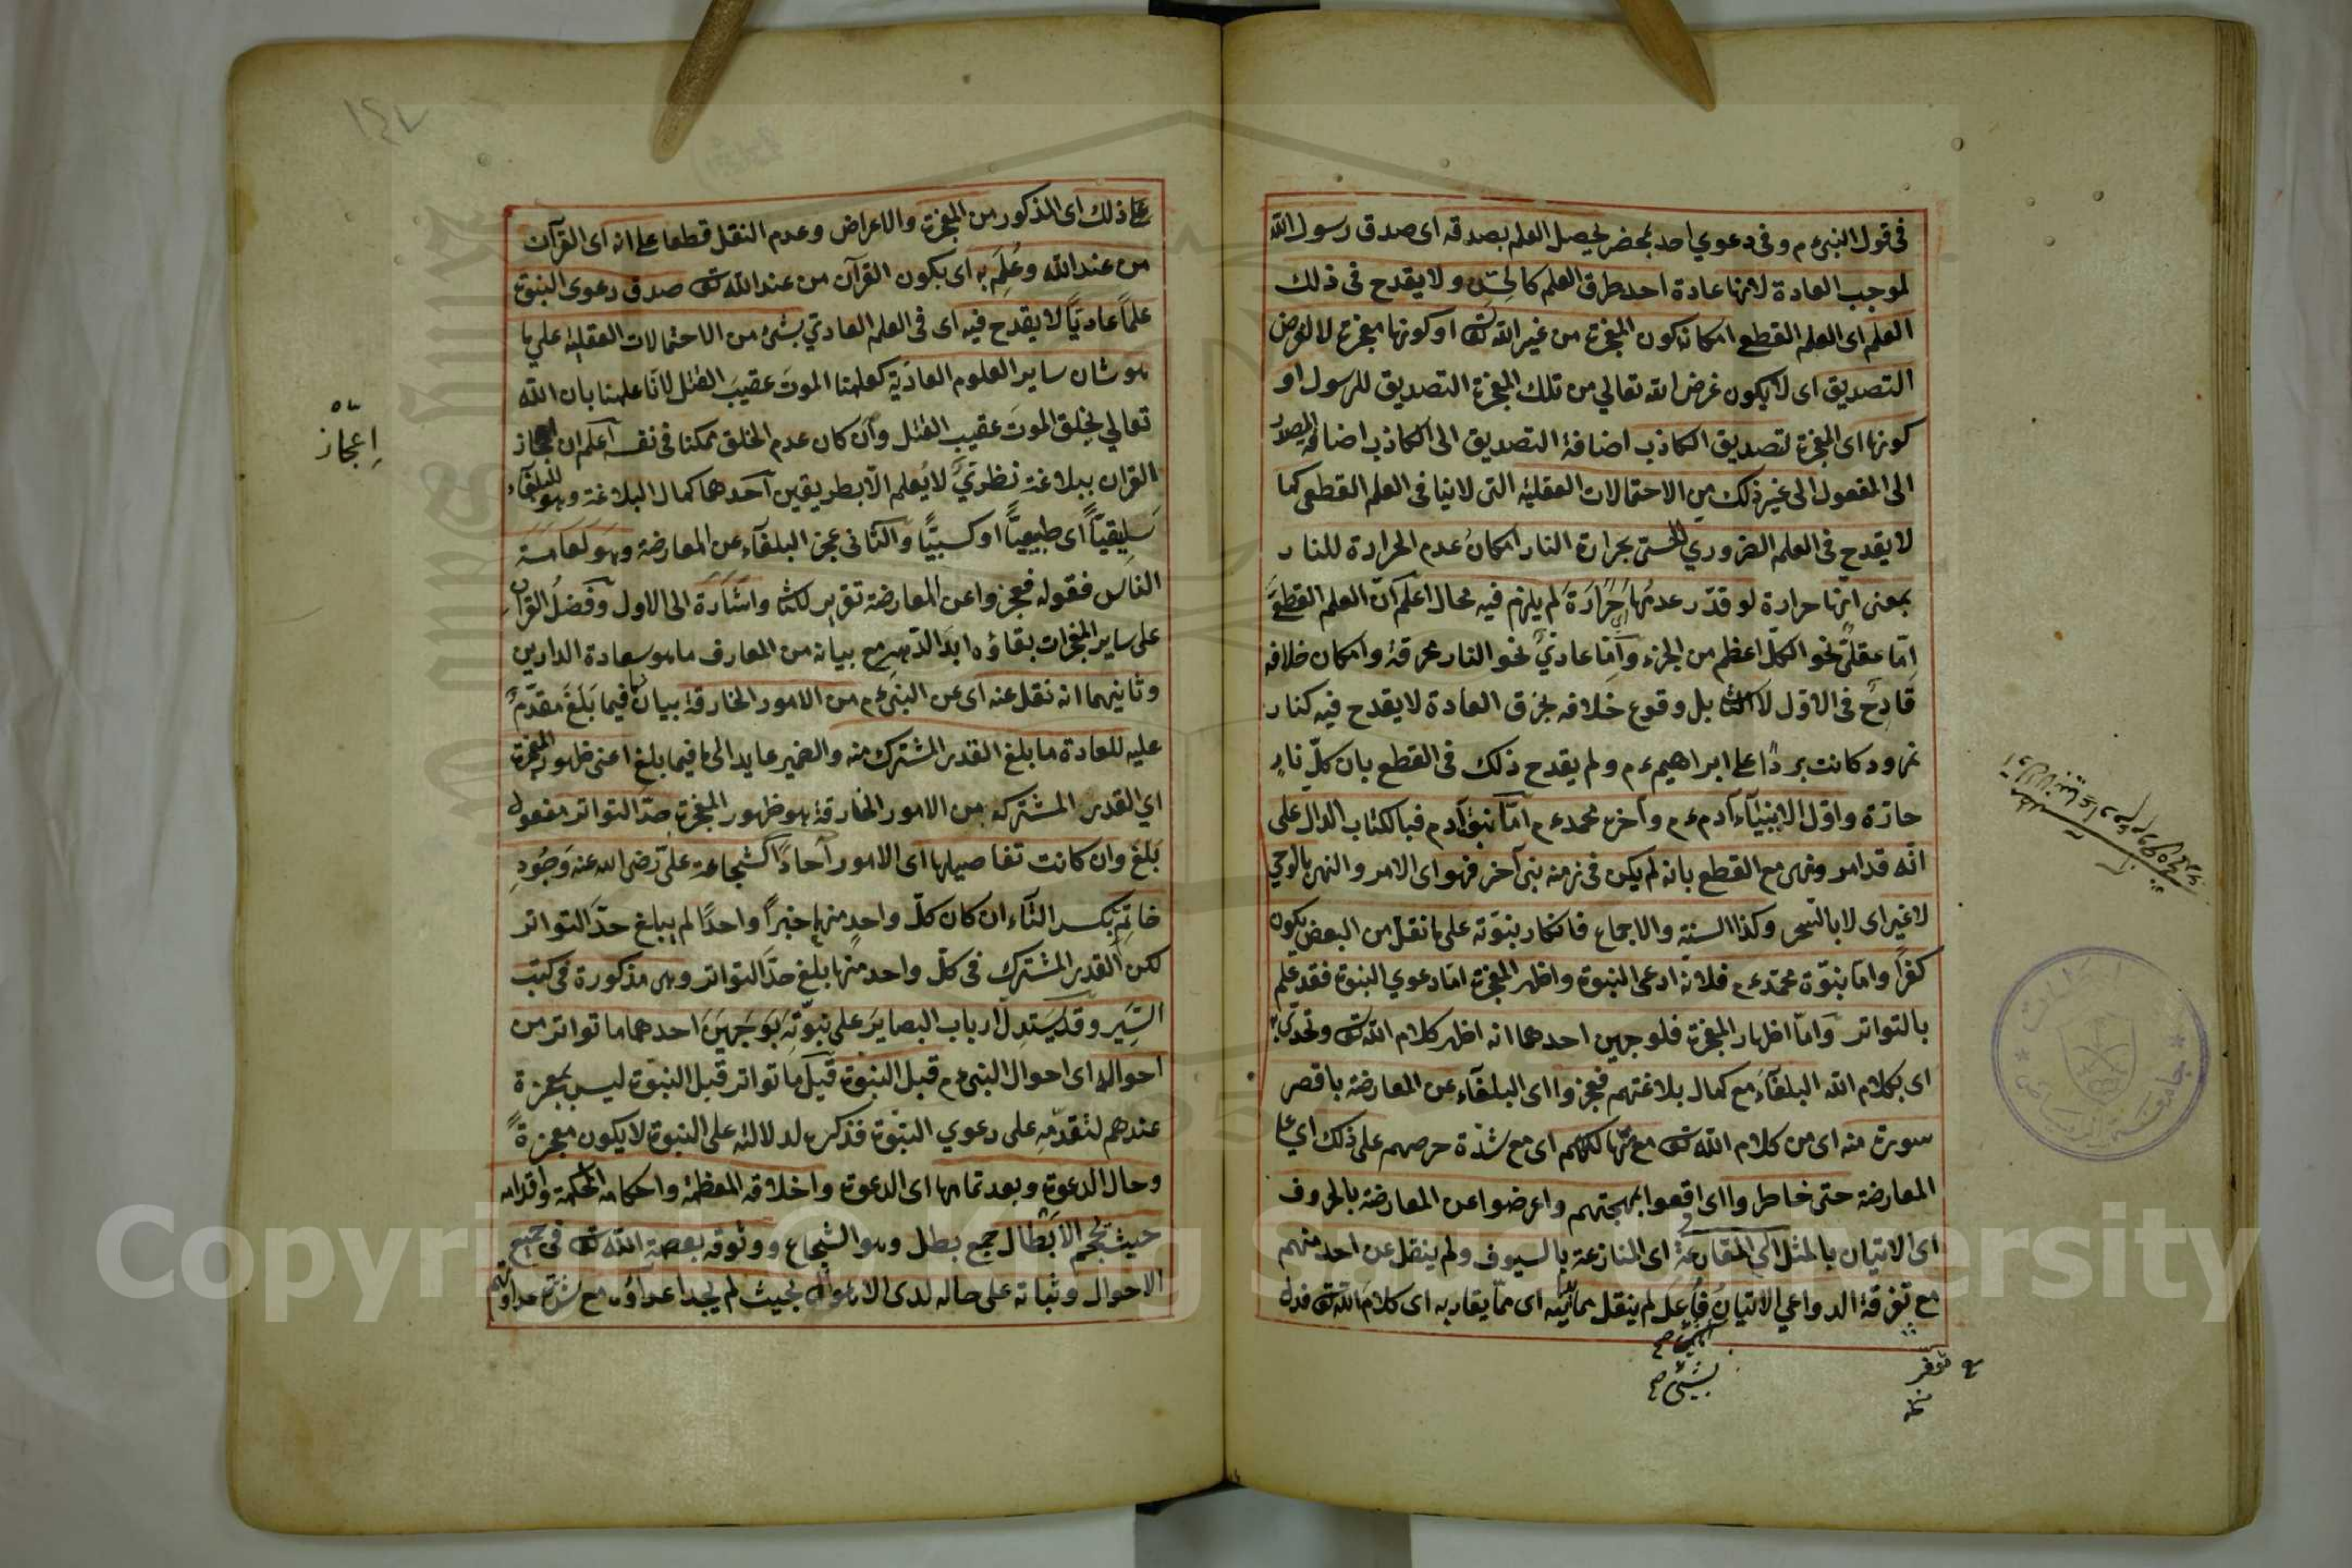 فى قول النبىء م وفى دعوي احد بمحضر يحصل العلم بصدقه اى صدق رسول الله
لموجب العادة لانها عادة احد طرق العلم كالحس ولا يقدح فى ذلك
العلم اى العلم القطع امكان كون المعجزة من غير الله تعـ او كونها معجزة لا لغرض
التصديق اى لا يكون غرض الله تعالي من تلك المعجزة التصديق للرسول او
كونها اى المعجزة لتصديق الكاذب اضافة التصديق الى الكاذب اضافة المصدر
الى المفعول الى غير ذلك من الاحتمالات العقلية التى لا ينافى العلم القطعى كما
لا يقدح فى العلم الضروري الحسى بحرارة النار امكان عدم الحرارة للنار
بمعنى انها حرارة لو قدر عدمها حرارة لم يلزم فيه محال اعلم ان العلم القطع
اما عقلى نحو الكل اعظم من الجزء واما عادي نحو النار محرقة وامكان خلافه
قادح فى الاول لا الثانى بل وقوع خلافه بخرق العادة لا يقدح فيه كنار
نمرود كانت بردا على ابراهيم ءم ولم يقدح ذلك فى القطع بان كل نار
حارة واول الانبياء آدم ءم وآخره محمد ءم اما نبوة آدم فبا لكتاب الدال على
انه قد امر ونهى مع القطع بانه لم يكن فى زمنه نبى آخر فهو اى الامر والنهى بالوحي
لا غير اى لا بالسحر وكذا السنة والاجماع فانكار نبوته على ما نقل من البعض يكون
كفرا واما نبوة محمد ءم فلانه ادعى النبوة واظهر المعجزة اما دعوي النبوة فقد علم
بالتواتر واما اظهار المعجزة فلوجهين احدهما انه اظهر كلام الله تعـ وتحدى به
اى بكلام الله البلغاء مع كمال بلاغتهم فعجزوا اى البلغاء عن المعارضة باقصر
سورة منه اى من كلام الله تعـ مع تهالكهم اى مع شدة حرصهم على ذلك اي على
المعارضة حتى خاطروا اى اوقعوا بمهجتهم واعرضوا عن المعارضة بالحروف
اى الاتيان بالمثل الى المقارعة اى المنازعة بالسيوف ولم ينقل عن احد منهم
مع تفرقة الدواعي الاتيان فاعل لم ينقل مما اى مما يقاربه اى كلام الله تعـ فدل
بشيئ صح
توفر
على ذلك اى المذكور من المعجزة والاعراض وعدم النقل قطعا على انه اى القرآن
من عند الله وعلم به اى بكون القرآن من عند الله تعـ صدق دعوى النبوة
علما عاديا لا يقدح فيه اى فى العلم العادي بشئ من الاحتمالات العقلية على ما
هو شان ساير العلوم العادية كعلمنا الموت عقيب القتل لانا علمنا بان الله
تعالي يخلق الموت عقيب القتل وان كان عدم الخلق ممكنا فى نفسه اعلم ان اعجاز
القران ببلاغته نظري لا يعلم الا بطريقين احدهما كمال البلاغة وهو للبلغاء
سليقيا اى طبيعيا او كسبيا والثانى عجز البلغاء عن المعارضة وهو لعامة
الناس فقوله فعجزوا عن المعارضة تقرير لكذا واشارة الى الاول وفضل القران
على ساير المعجزات بقاؤه ابد الدهر مع بيانه من المعارف ما هو سعادة الدارين
وثانيهما انه نقل عنه اى عن النبىء م من الامور الخارقة بيان فيما بلغ مقدم
عليه للعادة ما بلغ القدر المشترك منه والضمير عايد الى ما فيما بلغ اعنى ظهور المعجزة
اي القدر المشترك من الامور الخارقة هو ظهور المعجزة حد التواتر مفعول
بلغ وان كانت تفاصيلها اى الامور آحادا كشجاعة على رضى الله عنه وجود
حاتم بكسر التاء ان كان كل واحد منها خبرا واحدا لم يبلغ حد التواتر
لكن القدر المشترك فى كل واحد منها بلغ حد التواتر وهى مذكورة فى كتب
السير وقد يستدل ارباب البصاير على نبوته بوجهين احدهما ما تواتر من
احواله اى احوال النبىء م قبل النبوة قيل ما تواتر قبل النبوة ليس بمعجزة
عندهم لتقدمه على دعوي النبوة فذكره لدلالته على النبوة لا يكون معجزة
وحال الدعوة وبعد تمامها اى الدعوة واخلاقه العظيمة واحكامه المحكمة واقدامه
حيث يحجم الابطال جمع بطل وهو الشجاع ووثوقه بعصمة الله تعـ فى جميع
الاحوال وثباته على حاله لدى الاهوال بحيث لم يجد اعداؤه مع شدة عداوتهم
اعجاز
١٤٧
Copyright © King Saud University